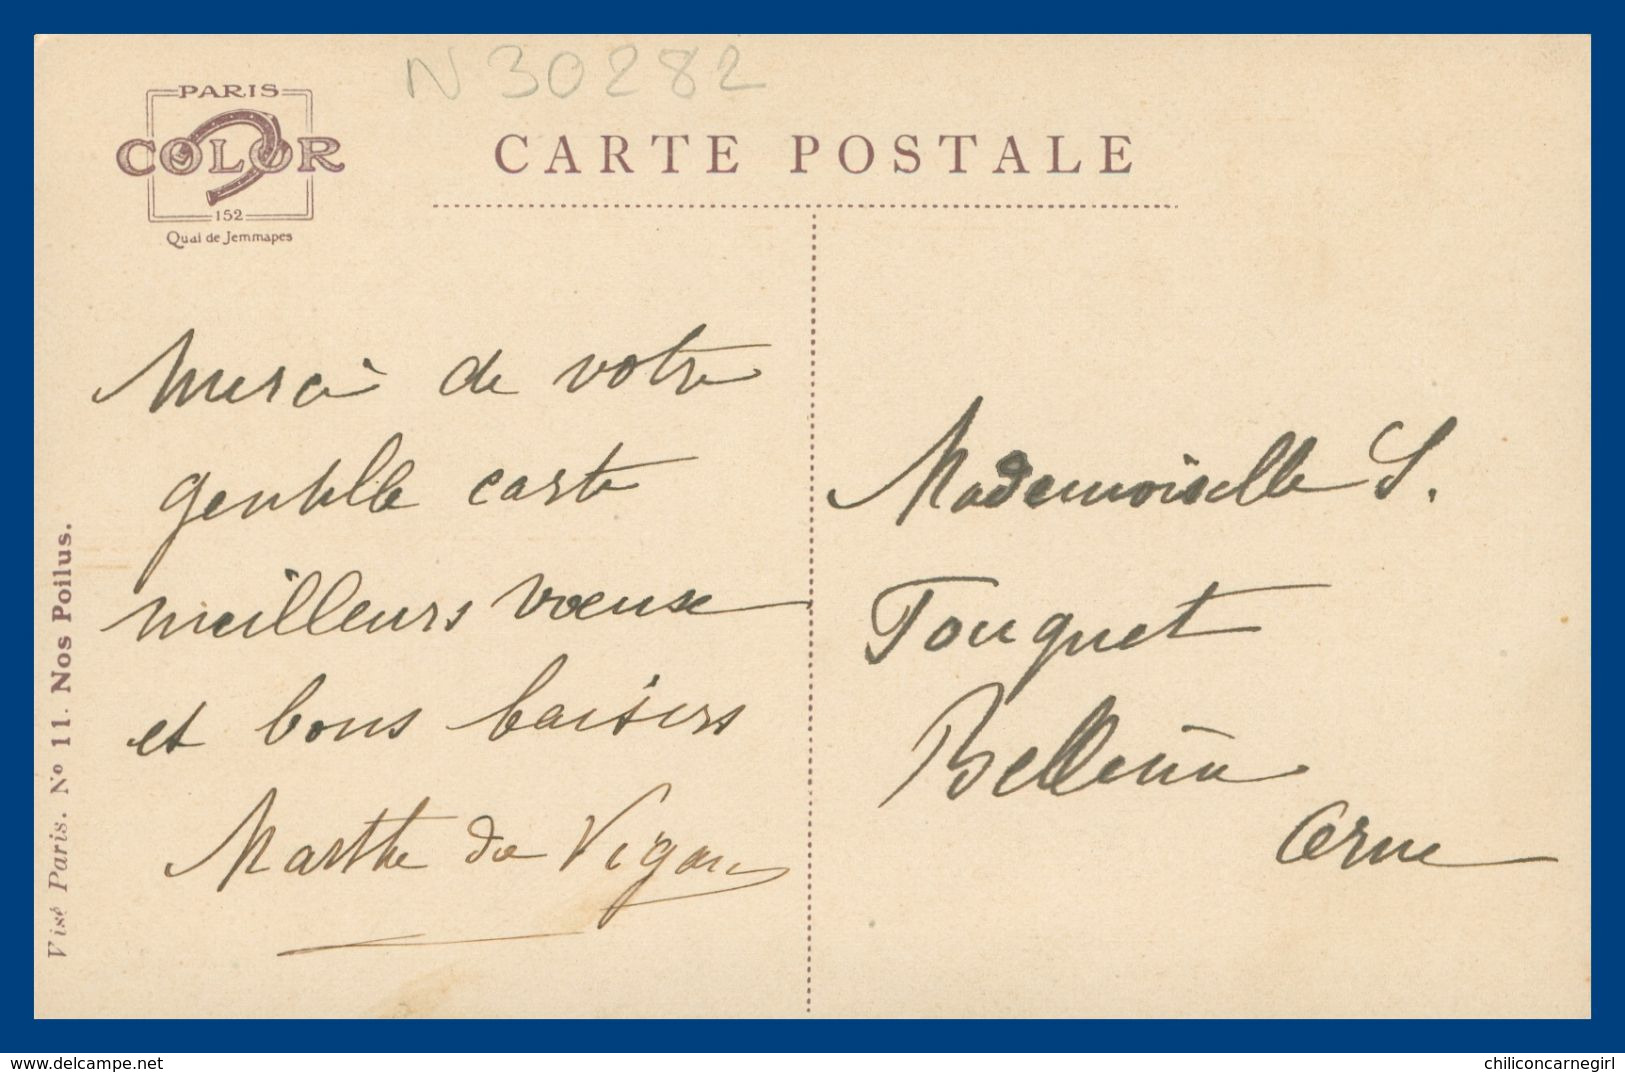 N 30282
PARIS
COLOR
152
Quai de Jemmapes
CARTE POSTALE
Merci de votre
gentille carte
meilleurs voeux
et bons baisers
Marthe de Vigan
Mademoiselle S.
Touquet
Bellou
Orne
Visé Paris. No 11. Nos Poilus.
delcampe.net
chiliconcarnegirl